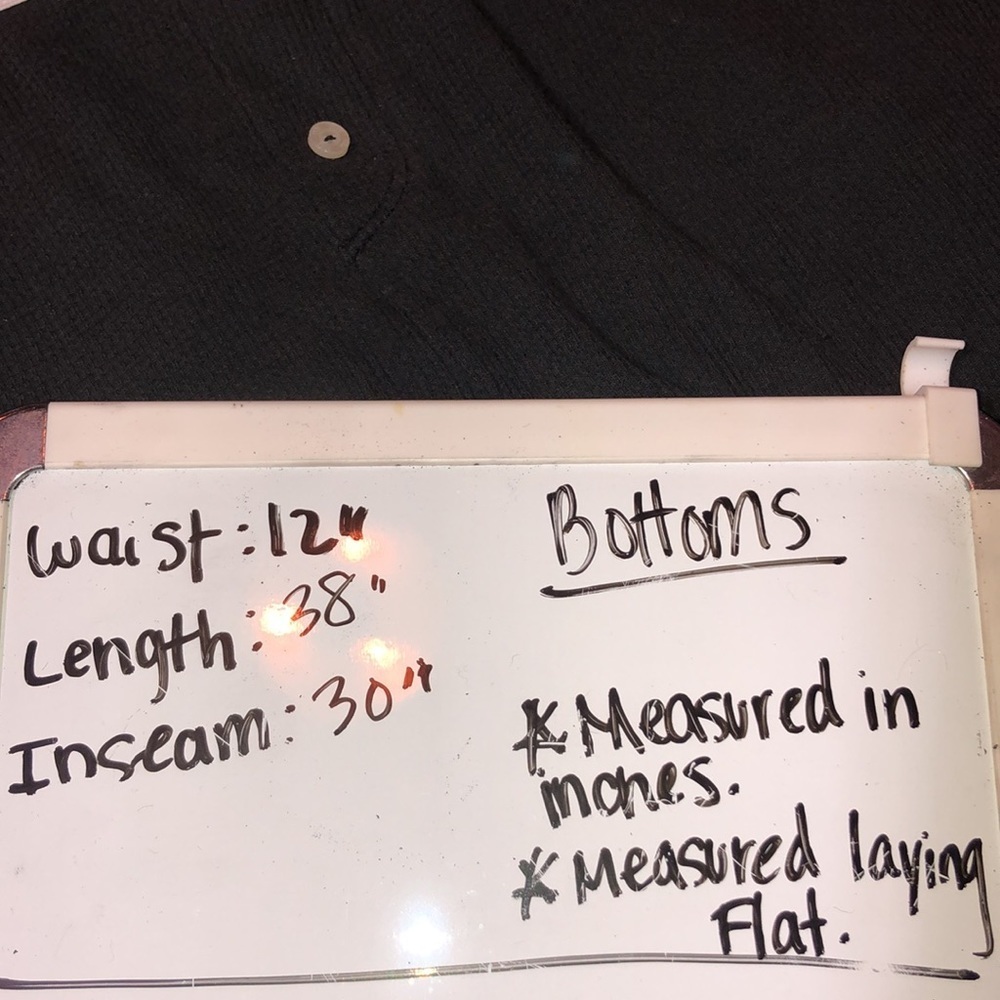 Waist: 12"
Length: 38"
Inseam: 30"
Bottoms
* Measured in
inches.
* Measured laying
Flat.